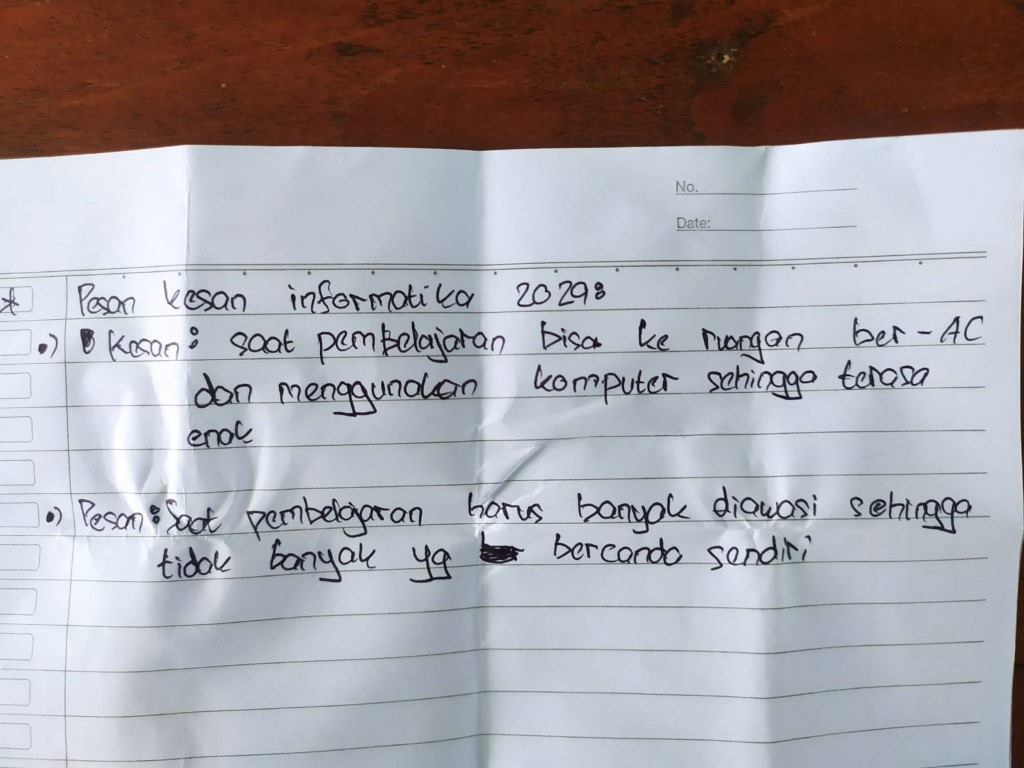 No.
Date:
* Pesan kesan informatika 2029:
•) Kesan: saat pembelajaran bisa ke ruangan ber-AC
dan menggunakan komputer sehingga terasa
enak
•) Pesan: Saat pembelajaran harus banyak diawasi sehingga
tidak banyak yg bercanda sendiri